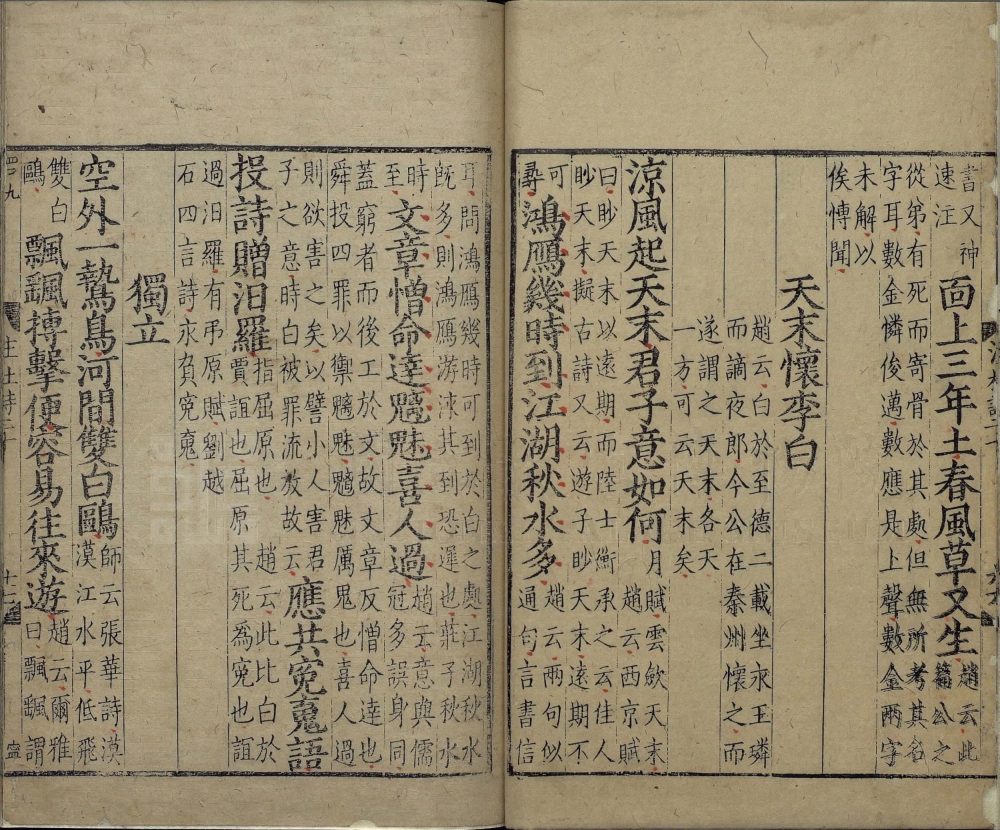 書又神
速注
面上三年土春風草又生
趙云此
篇公之
從弟有死而寄骨於其處但無所考其名
字耳數金憐俊邁數應是上聲數金兩字
未解以
俟博聞
天末懷李白
趙云白於至德二載坐永王璘
而謫夜郎今公在秦州懷之而
遂謂之天末各天
一方可云天末矣
涼風起天末君子意如何
月賦雲斂天末
趙云西京賦
曰眇天末以遠期而陸士衡承之云佳人
眇天末擬古詩又云遊子眇天末遠期不
可
尋
鴻鴈幾時到江湖秋水多
趙云兩句似
通句言書信
耳問鴻鴈幾時可到於白之處江湖秋水
旣多則鴻鴈游泳其到恐遲也莊子秋水
時
至
文章憎命達魑魅喜人過
趙云意與儒
冠多誤身同
蓋窮者而後工於文故文章反憎命達也
舜投四罪以禦魑魅魑魅厲鬼也喜人過
則欲害之矣以譬小人害君
子之意時白被罪流放故云
應共寃䰟語
投詩贈汨羅
指屈原也 趙云此比白於
賈誼也屈原其死爲寃也誼
過汨羅有弔原賦劉越
石四言詩永負寃䰟
獨立
空外一鷙鳥河間雙白鷗
師云張華詩漠
漠江水平低飛
雙白
鷗
飄飄搏擊便容易往來遊
趙云爾雅
曰飄飄謂